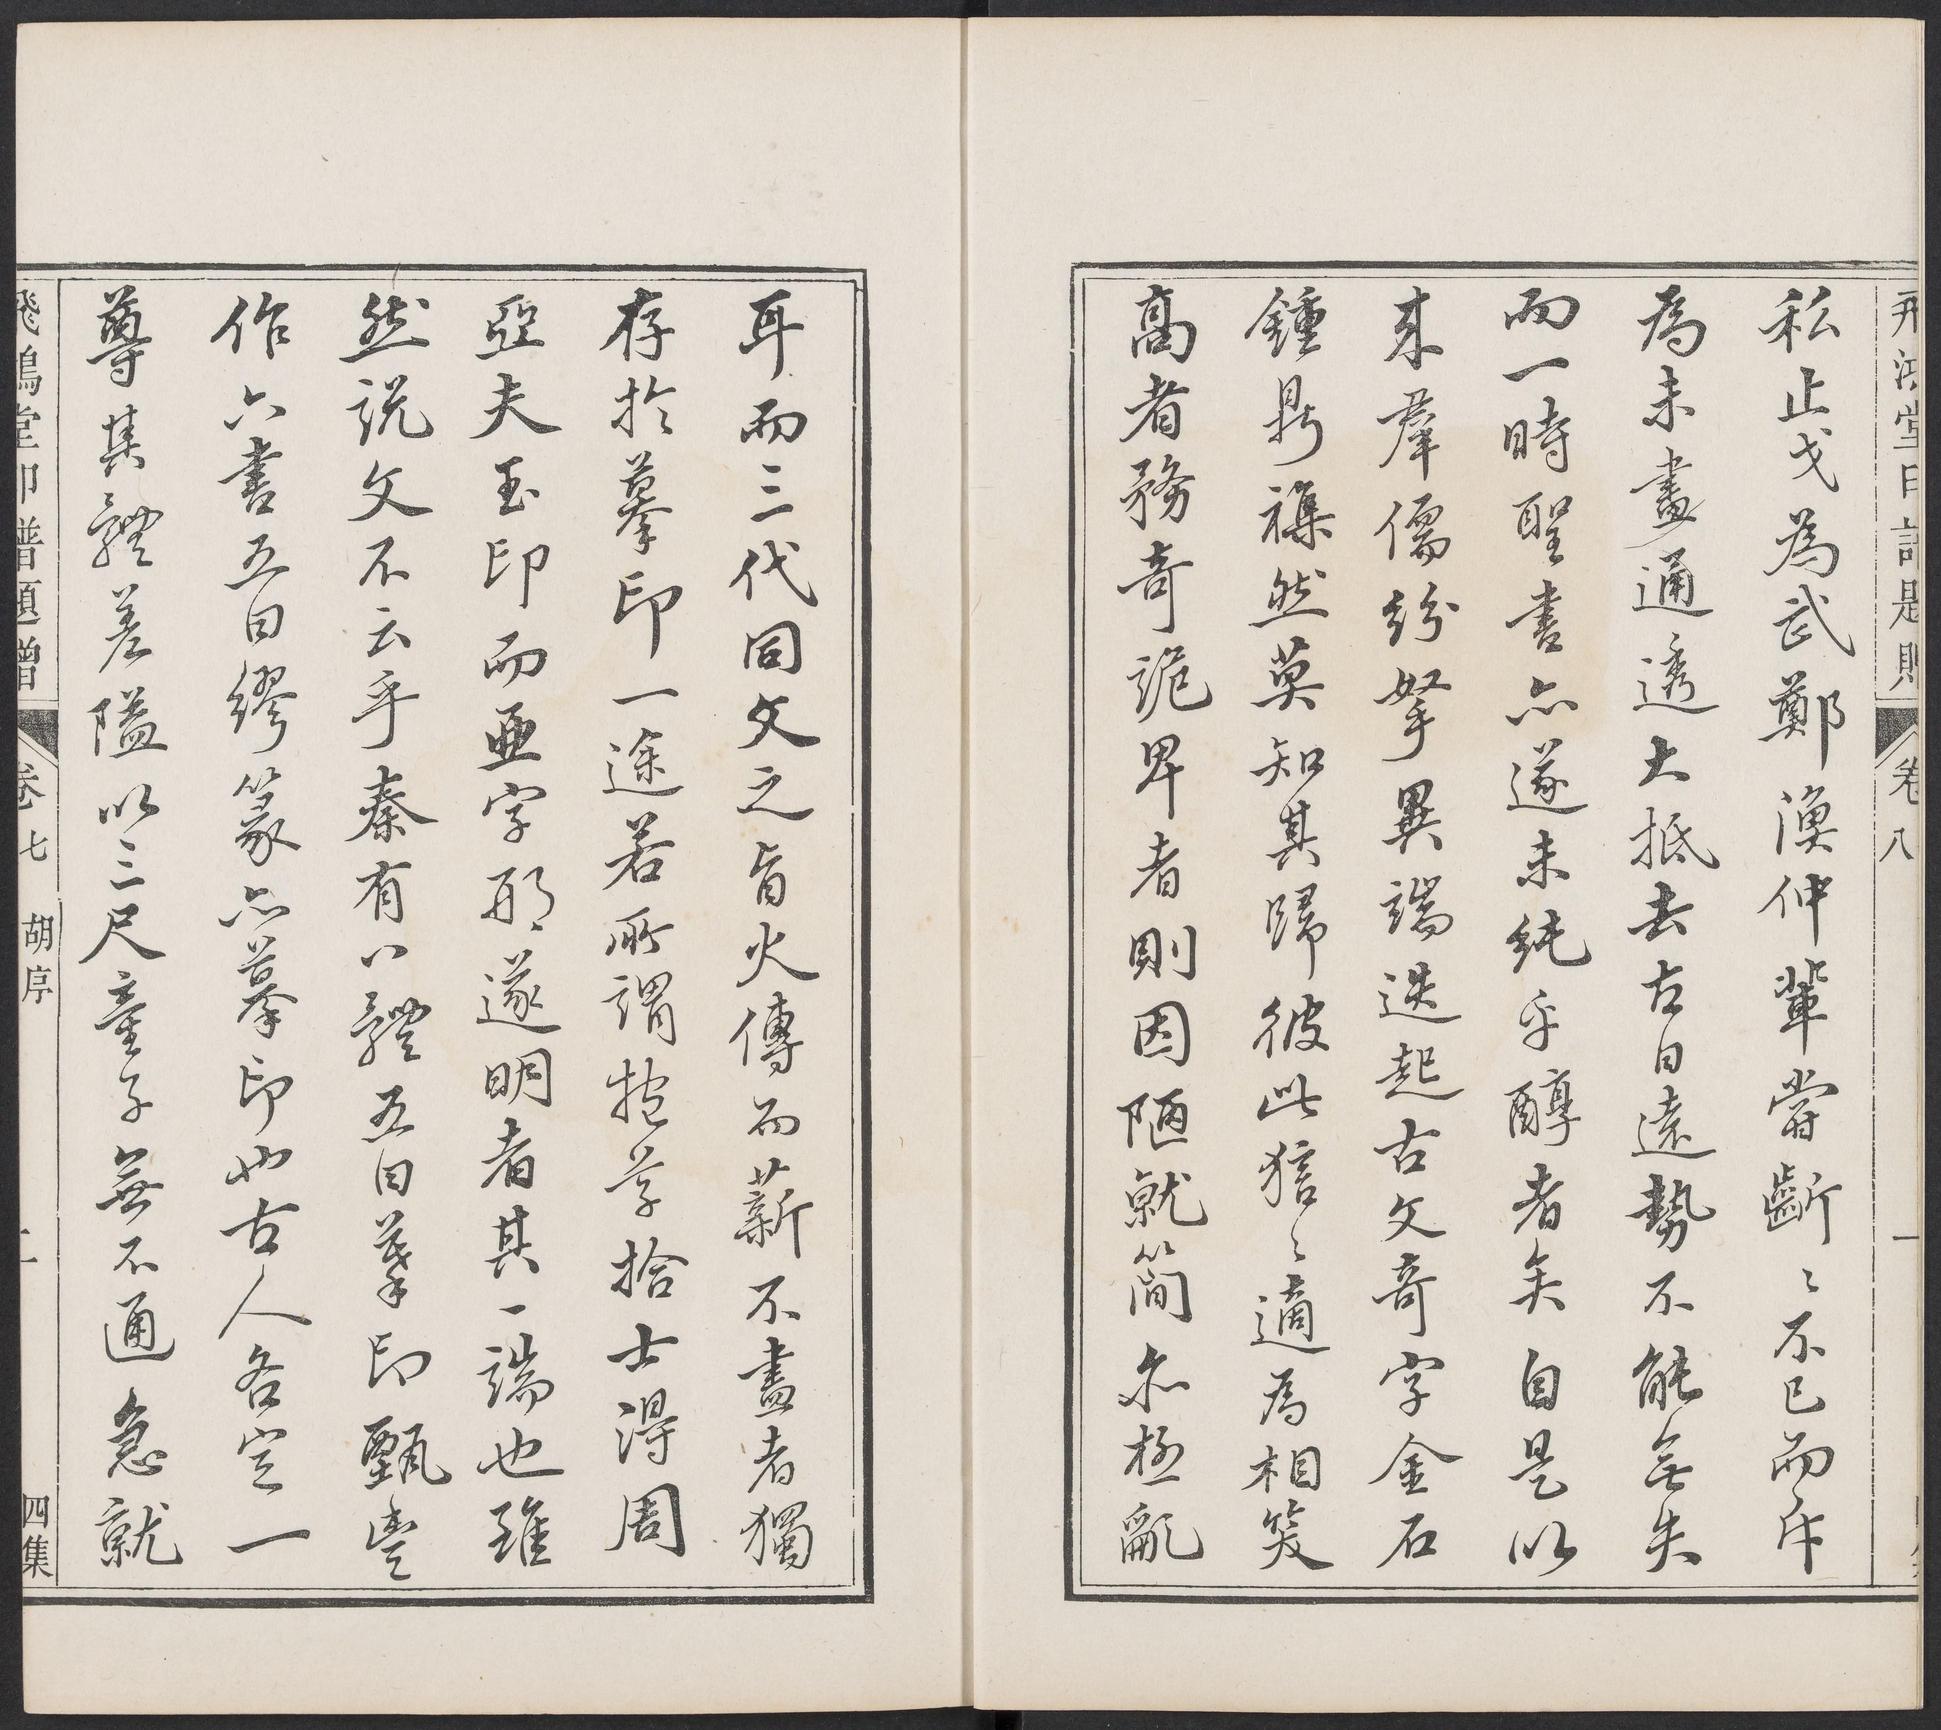 私止戈為武鄭漁仲輩嘗齗〻不已而斥
為未盡通透大抵去古日遠勢不能無失
而一時聖書亦遂未純乎醇者矣自是以
来羣儒紛拏異端迭起古文奇字金石
鍾鼎襍然莫知其歸彼此狺〻適為相笑
髙者務奇詭卑者則因陋就簡亦極亂
耳而三代同文之旨火傳而薪不盡者獨
存於摹印一途若所謂抱芋拾土得周
亞夫玉印而亜字形遂明者其一端也雖
然說文不云乎秦有八體五曰摹印甄豐
作六書五曰繆篆亦摹印也古人各定一
尊其體差隘以三尺童子無不通急就
飛鴻堂印譜題贈
卷八
一
飛鴻堂印譜題贈
卷七
胡序
二
四集